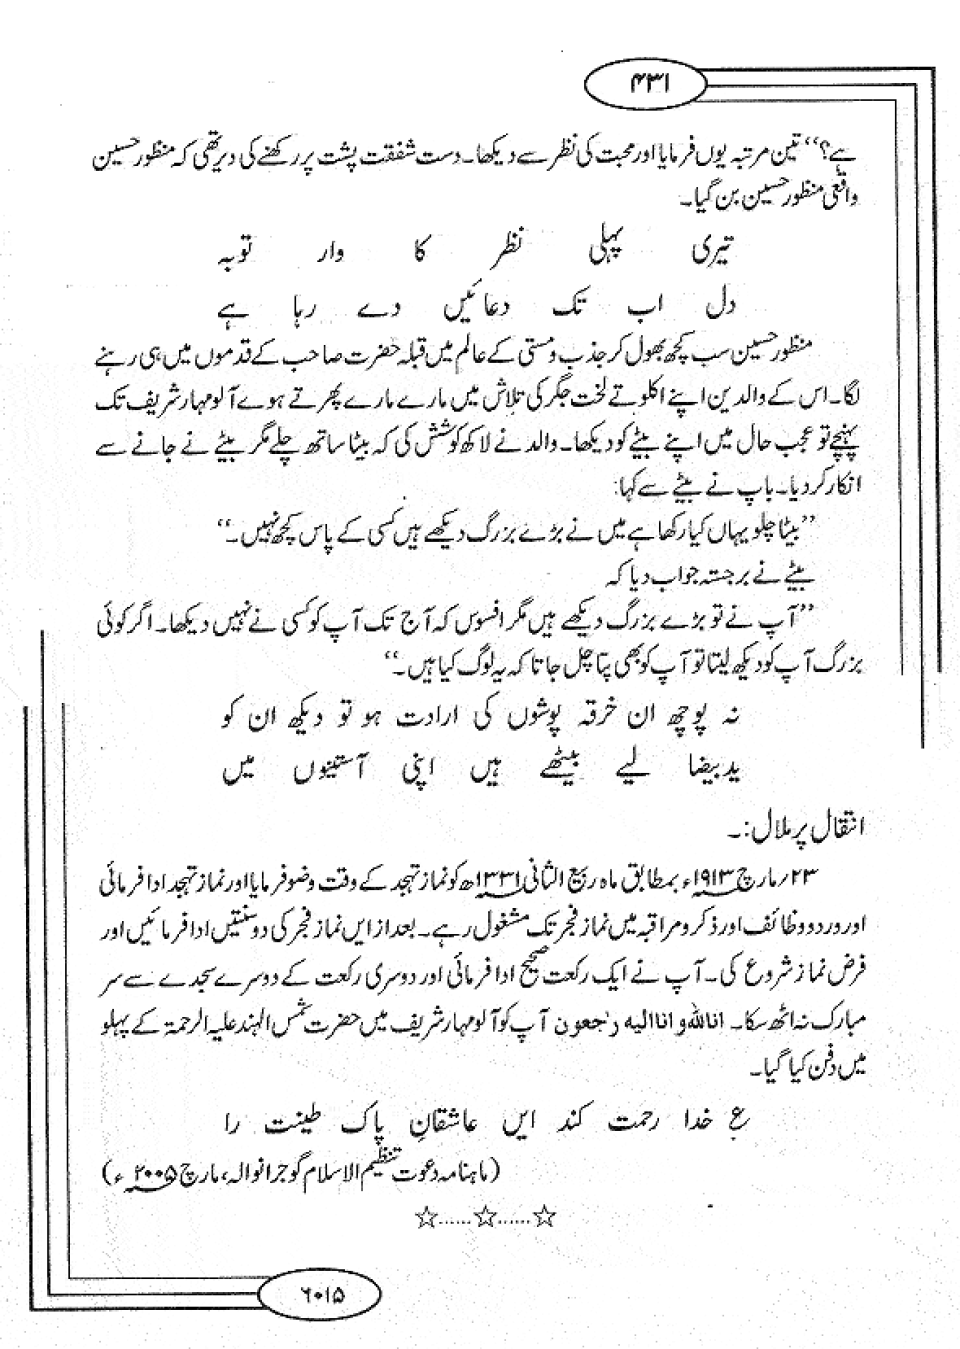 ۴۳۱
ہے؟‘‘ تین مرتبہ یوں فرمایا اور محبت کی نظر سے دیکھا۔ دست شفقت پشت پر رکھنے کی دیر تھی کہ منظور حسین
واقعی منظور حسین بن گیا۔
تیری پہلی نظر کا وار توبہ
دل اب تک دعائیں دے رہا ہے
منظور حسین سب کچھ بھول کر جذب و مستی کے عالم میں قبلہ حضرت صاحب کے قدموں میں ہی رہنے
لگا۔ اس کے والدین اپنے اکلوتے لخت جگر کی تلاش میں مارے مارے پھرتے ہوے آلومہار شریف تک
پہنچے تو عجب حال میں اپنے بیٹے کو دیکھا۔ والد نے لاکھ کوشش کی کہ بیٹا ساتھ چلے مگر بیٹے نے جانے سے
انکار کر دیا۔ باپ نے بیٹے سے کہا:
’’بیٹا چلو یہاں کیا رکھا ہے میں نے بڑے بزرگ دیکھے ہیں کسی کے پاس کچھ نہیں۔‘‘
بیٹے نے برجستہ جواب دیا کہ
’’آپ نے تو بڑے بزرگ دیکھے ہیں مگر افسوس کہ آج تک آپ کو کسی نے نہیں دیکھا۔ اگر کوئی
بزرگ آپ کو دیکھ لیتا تو آپ کو بھی پتا چل جاتا کہ یہ لوگ کیا ہیں۔‘‘
نہ پوچھ ان خرقہ پوشوں کی ارادت ہو تو دیکھ ان کو
یدبیضا لیے بیٹھے ہیں اپنی آستینوں میں
انتقال پر ملال:۔
۲۳؍مارچ ۱۹۱۳ء بمطابق ماہ ربیع الثانی ۱۳۳۱ھ کو نماز تہجد کے وقت وضو فرمایا اور نماز تہجد ادا فرمائی
اور ورد و وظائف اور ذکر و مراقبہ میں نماز فجر تک مشغول رہے۔ بعد از ایں نماز فجر کی دو سنتیں ادا فرمائیں اور
فرض نماز شروع کی۔ آپ نے ایک رکعت صحیح ادا فرمائی اور دوسری رکعت کے دوسرے سجدے سے سر
مبارک نہ اٹھ سکا۔ انا للہ وانا الیہ رٰجعون آپ کو آلومہار شریف میں حضرت شمس الہند علیہ الرحمۃ کے پہلو
میں دفن کیا گیا۔
ع خدا رحمت کند ایں عاشقانِ پاک طینت را
(ماہنامہ دعوت تنظیم الاسلام گوجرانوالہ، مارچ ۲۰۰۵ء)
☆......☆......☆
۶۰۱۵